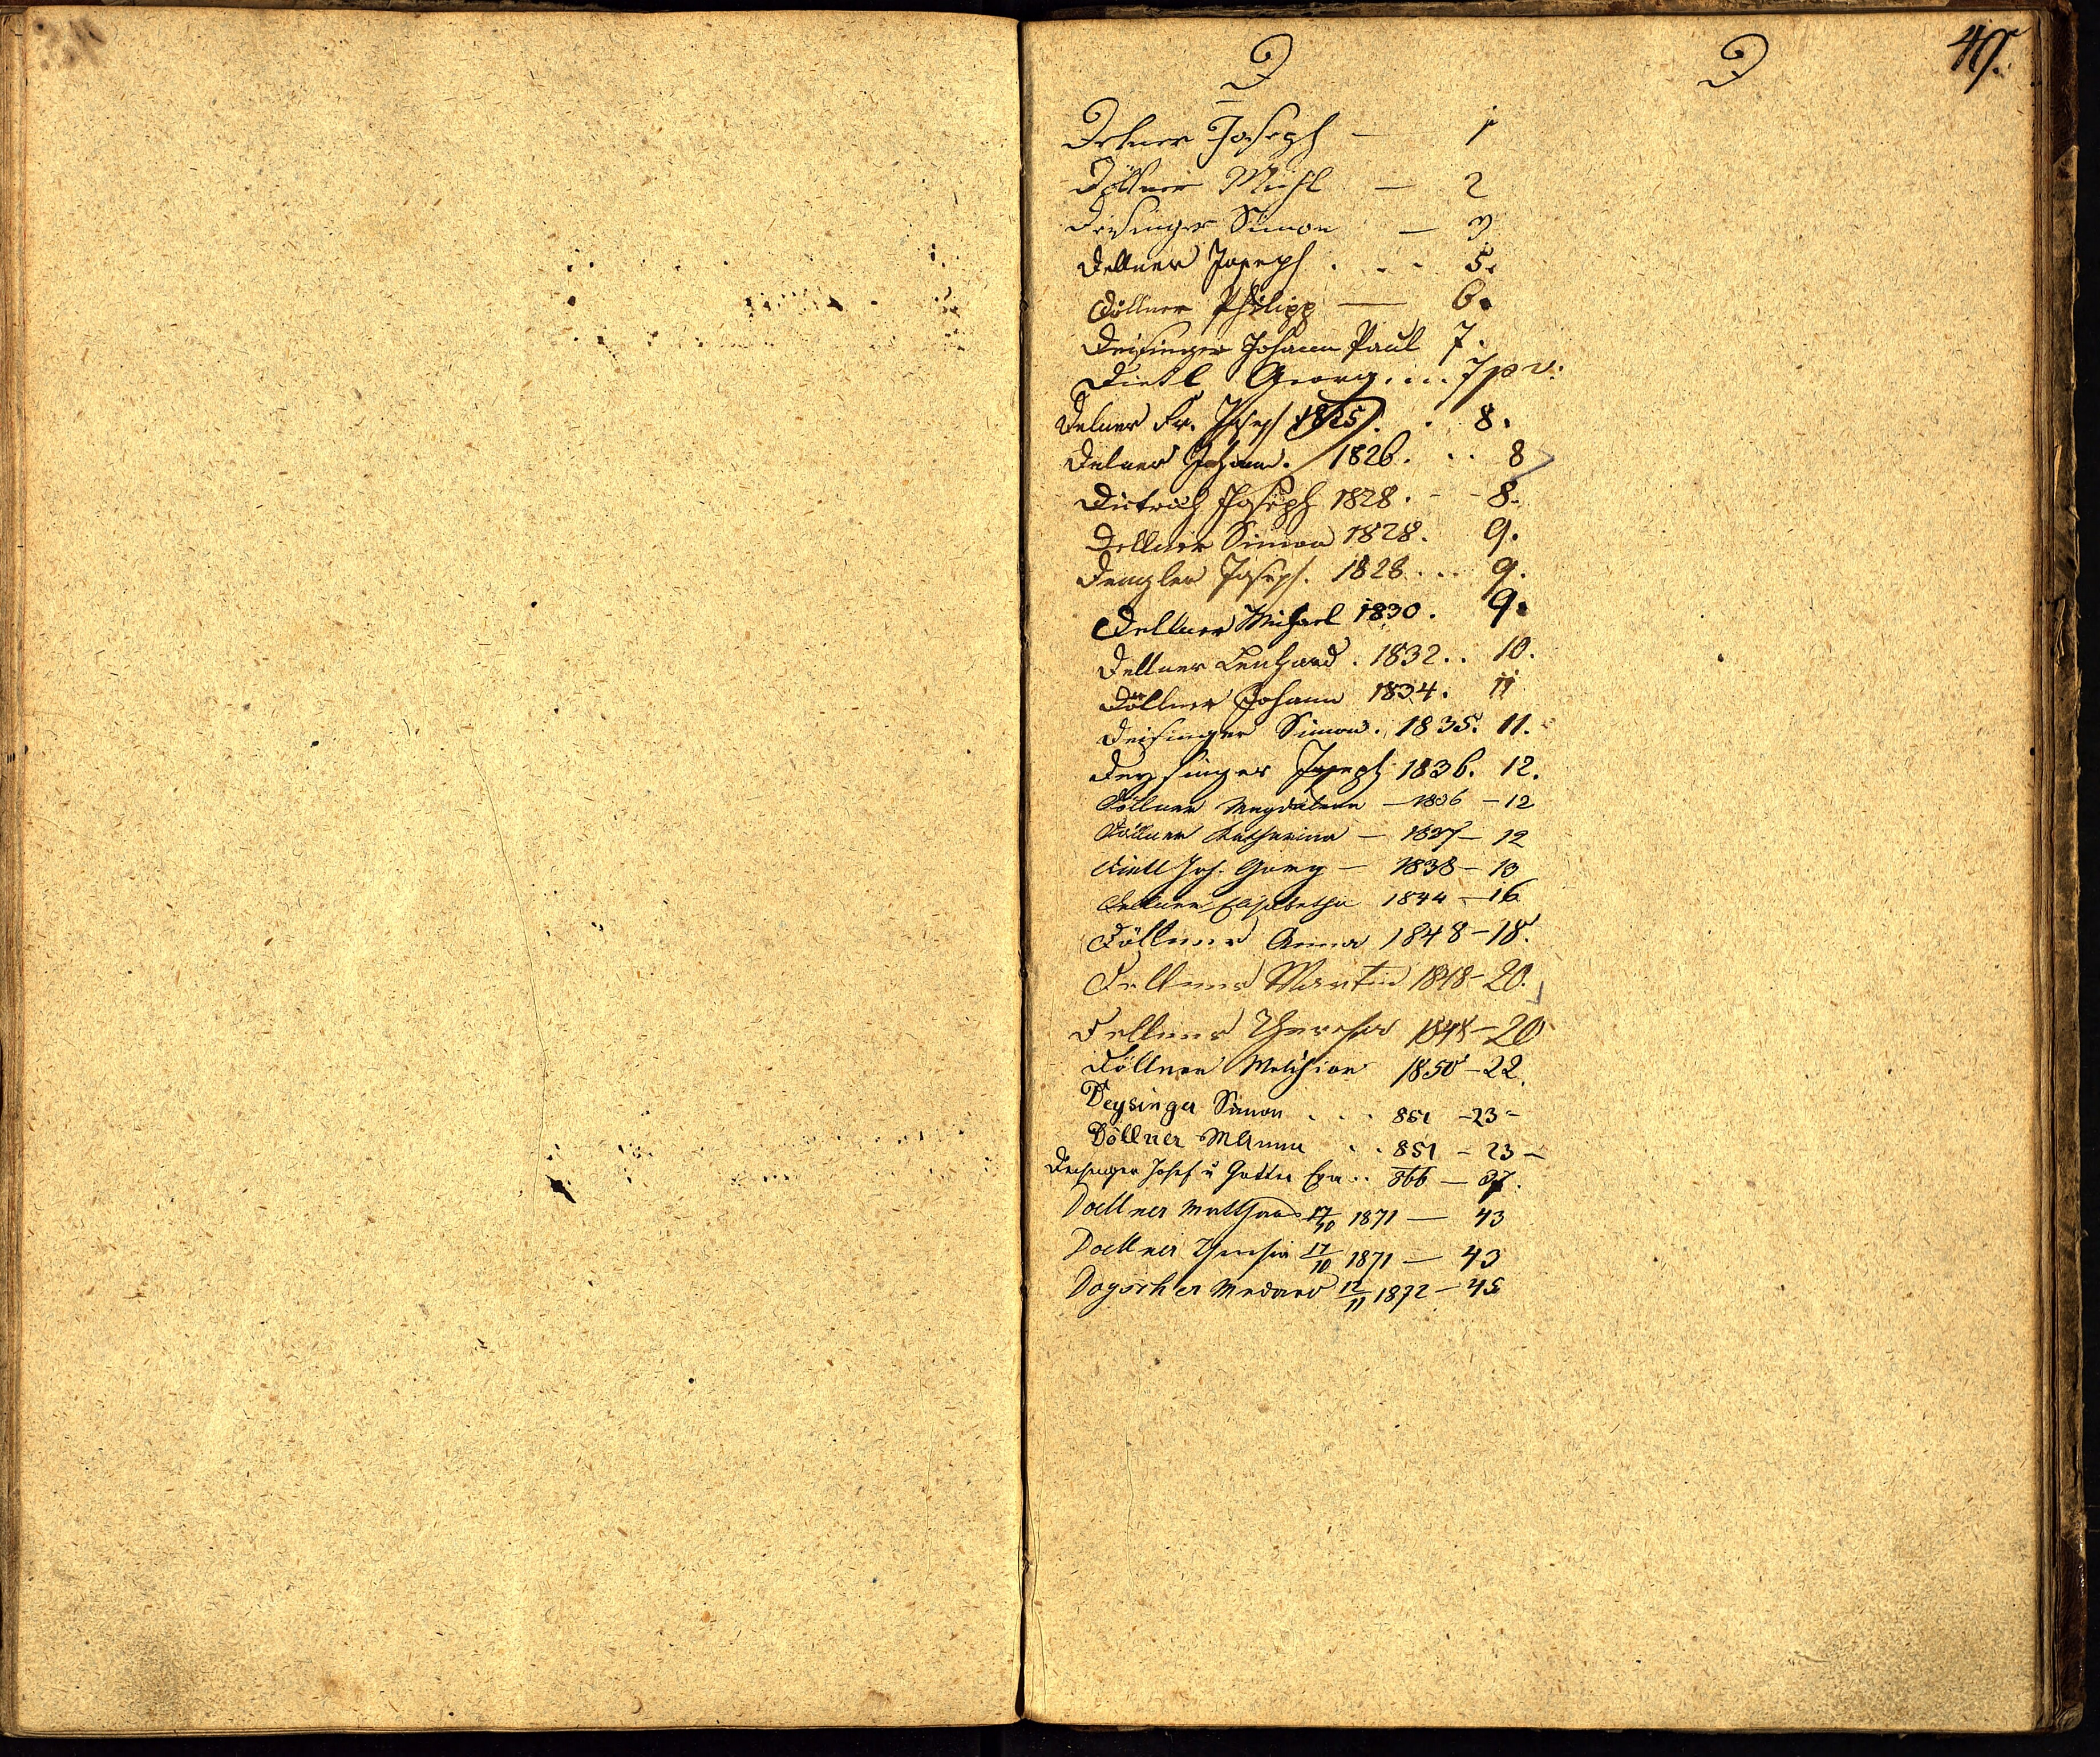 D D 49.
Delner Joseph — 1
Döllner Michl — 2
Deisinger Simon — 3
Dellner Joseph . . . 5.
Döllner Philipp — 6.
Deisinger Johann Paul 7.
Dietl Georg . . . 7 p v.
Delner Fr. Joseph 1825 . . 8.
Delner Johann. 1826. . . 8
Dietrich Joseph 1828. - - 8.
Dellner Simon 1828. 9.
Dengler Joseph. 1828 . . . 9.
Dellner Michael 1830. 9.
Dellner Leonhard. 1832 . . 10.
Döllner Johann 1834. 11
Deisinger Simon. 1835. 11.
Deysinger Joseph 1836. 12.
Döllner Magdalena — 1836 — 12
Döllner Katharina — 1837 — 12
Dietl Joh. Georg — 1838 — 13
Dellner Elisabetha 1844 — 16
Döllner Anna 1848 — 18.
Dellner Martin 1848 — 20.
Dellner Theresia 1848 — 20
Döllner Melchior 1850 — 22.
Deysinger Simon . . . 851 — 23 —
Döllner M Anna . . 851 — 23 —
Deisinger Josef u Gattin Eva . . 866 — 37.
Doellner Matthaeus 17/10 1871 — 43
Doellner Theresia 17/10 1871 — 43
Dogscher Medard 12/11 1872 — 45